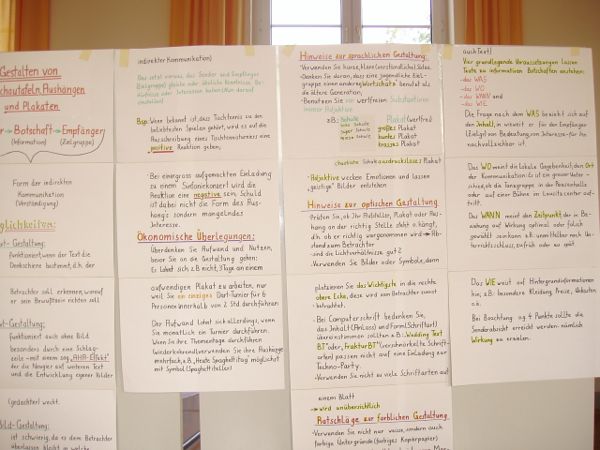 Gestalten von
Schautafeln, Aushängen
und Plakaten
Botschaft → Empfänger
(Information) (Zielgruppe)
Form der indirekten
Kommunikation
(Verständigung)
Möglichkeiten:
Text-Gestaltung:
funktioniert, wenn der Text die
Denkschiene bestimmt, d.h. der
Betrachter soll erkennen, worauf
er sein Bewußtsein richten soll
Gestaltung:
funktioniert auch ohne Bild
besonders durch eine Schlag-
zeile - mit einem sog. „AHA-Effekt"
der die Neugier auf weiteren Text
und die Entwicklung eigener Bilder
(gedachter) weckt.
Bild-Gestaltung:
ist schwierig, da es dem Betrachter
überlassen bleibt an welche
indirekter Kommunikation)
Das setzt voraus, das Sender und Empfänger
(Zielgruppe) gleiche oder ähnliche Kenntnisse, Be-
dürfnisse oder Interessen haben
Bsp: Wenn bekannt ist, dass Tischtennis zu den
beliebtesten Spielen gehört, wird es auf die
Ausschreibung eines Tischtennisturniers eine
positive Reaktion geben;
- Bei einer gross aufgemachten Einladung
zu einem Sinfoniekonzert wird die
Reaktion eine negative sein. Schuld
ist dabei nicht die Form des Aus-
hangs sondern mangelndes
Interesse.
Ökonomische Überlegungen:
Überdenken Sie Aufwand und Nutzen,
bevor Sie an die Gestaltung gehen:
Es lohnt sich z.B. nicht 3 Tage an einem
aufwendigen Plakat zu arbeiten, nur
weil Sie ein einziges Dart-Turnier für 6
Personen innerhalb von 2 Std durchführen
Der Aufwand lohnt sich allerdings, wenn
Sie monatlich ein Turnier durchführen.
Wenn Sie ihre Thementage durchführen
wiederkehrend verwenden Sie ihre Aushänge
mehrfach, z.B. „Heute Spaghetti Tag" möglichst
mit Symbol (Spaghettiteller)
Hinweise zur sprachlichen Gestaltung:
- Verwenden Sie kurze, klare (verständliche) Sätze.
- Denken Sie daran, dass eine jugendliche Ziel-
gruppe einen anderen Wortschatz benutzt als
die ältere Generation,
- Benutzen Sie vor wertfreien Substantiven
immer Adjektive
z.B: Schule Plakat (wertfrei)
tolle Schule großes Plakat
super Schule buntes Plakat
miese Schule krasses Plakat
chaotische Schule ausdrucksloses Plakat
- Adjektive wecken Emotionen und lassen
„geistige" Bilder entstehen
Hinweise zur optischen Gestaltung
- Prüfen Sie, ob Ihr Aufsteller, Plakat oder Aus-
hang an der richtig Stelle steht o. hängt,
d.h. ob er richtig wargenommen wird → Ab-
stand zum Betrachter
- sind die Lichtverhältnisse gut?
- Verwenden Sie Bilder oder Symbole, dann
platzieren Sie das Wichtigste in die rechte
obere Ecke, diese wird vom Betrachter zuerst
betrachtet.
- Bei Computerschrift bedenken Sie,
das Inhalt (Anlass) und Form (Schriftart)
übereinstimmen sollten z.B.: Wedding Text
BT oder, Fraktur BT (verschnörkelte Schrift-
arten) passen nicht auf eine Einladung zur
Techno-Party.
- Verwenden Sie nicht zu viele Schriftarten auf
einem Blatt
→ wird unübersichtlich
Ratschläge zur farblichen Gestaltung
- Verwenden Sie nicht nur weisse, sondern auch
farbige Untergründe (farbiges Kopierpapier)
auch Text)
Vier grundlegende Voraussetzungen lassen
Texte zu informativen Botschaften entstehen:
- das WAS
- das WO
- das WANN und
- das WIE
Die Frage nach dem WAS bezieht sich auf
den Inhalt, in wieweit er für den Empfänger
(Zielgr.) von Bedeutung, von Interesse - für ihn
nachvollziehbar ist.
Das WO meint die lokale Gegebenheit, den Ort
der Kommunikation. Es ist ein grosser Unter-
schied, ob die Tanzgruppe in der Pausenhalle
oder auf einer Bühne im Freizeitcenter auf-
tritt.
Das WANN meint den Zeitpunkt der in Be-
ziehung auf Wirkung optimal oder falsch
gewählt sein kann z.B. unmittelbar nach Un-
terrichtsschluss, zu früh oder zu spät
Das WIE weist auf Hintergrundinformationen
hin, z.B. besondere Kleidung, Preise, Unkosten
o.ä.
Bei Beachtung o.g 4 Punkte sollte die
Senderabsicht erreicht werden: nämlich
Wirkung zu erzielen.